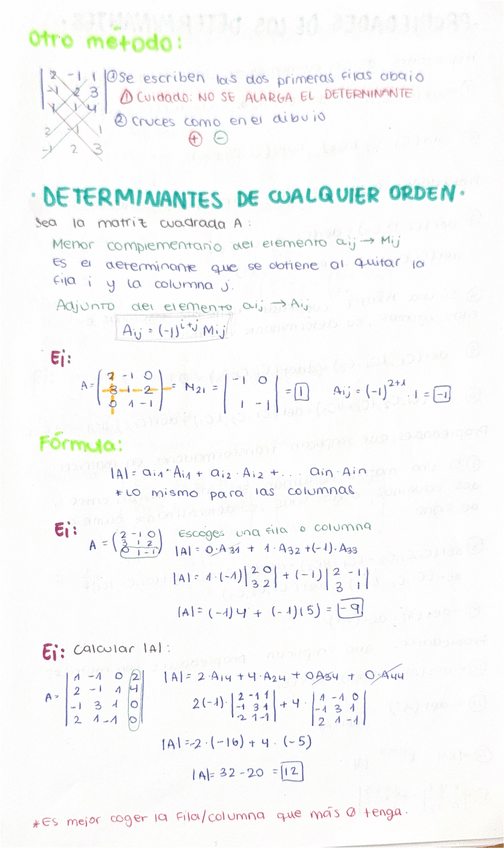 Otro método:
2 -1 1
-1 2 3
1 1 4
2 -1 1
-1 2 3
① Se escriben las dos primeras filas abajo
⚠ Cuidado: NO SE ALARGA EL DETERMINANTE
② Cruces como en el dibujo
⊕ ⊖
· DETERMINANTES DE CUALQUIER ORDEN ·
Sea la matriz cuadrada A:
Menor complementario del elemento aij → Mij
Es el determinante que se obtiene al quitar la
fila i y la columna j.
Adjunto del elemento aij → Aij
Aij = (-1)^(i+j) Mij
Ej:
A = ( 2 -1 0 / 3 1 -2 / 0 1 -1 ) = M21 = | -1 0 / 1 -1 | = 1 Aij = (-1)^(2+1) · 1 = -1
Fórmula:
|A| = ai1 · Ai1 + ai2 · Ai2 + ... ain · Ain
* Lo mismo para las columnas
Ej:
A = ( 2 -1 0 / 3 1 2 / 0 1 -1 ) Escoges una fila o columna
|A| = 0·A31 + 1·A32 + (-1)·A33
|A| = 1·(-1) | 2 0 / 3 2 | + (-1) | 2 -1 / 3 1 |
|A| = (-1)4 + (-1)(5) = -9
Ej: Calcular |A|:
A = | 1 -1 0 2 / 2 -1 1 4 / -1 3 1 0 / 2 1 -1 0 |
|A| = 2·A14 + 4·A24 + 0A34 + 0·A44
2(-1)· | 2 -1 1 / -1 3 1 / 2 1 -1 | + 4· | 1 -1 0 / -1 3 1 / 2 1 -1 |
|A| = -2·(-16) + 4·(-5)
|A| = 32 - 20 = 12
* Es mejor coger la fila/columna que más 0 tenga.